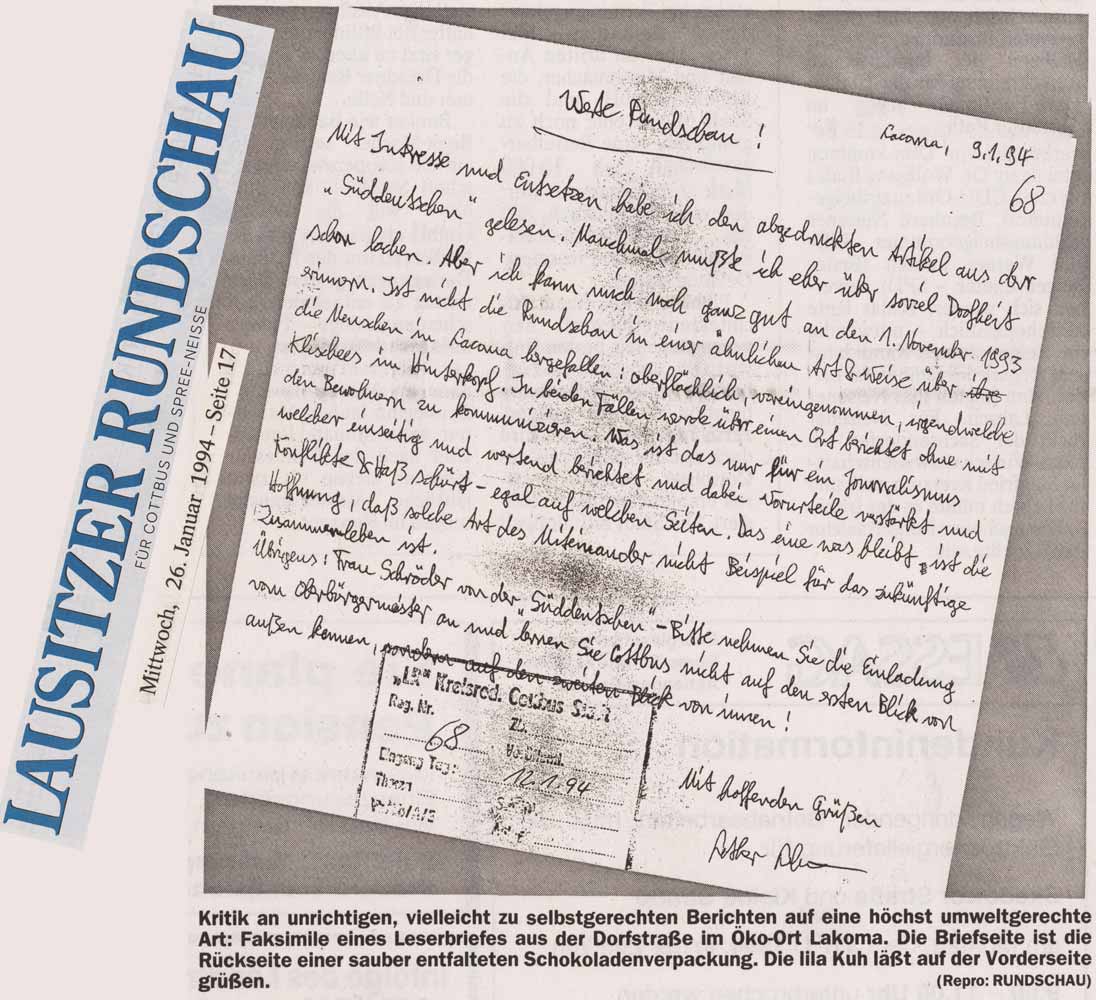 LAUSITZER RUNDSCHAU
FÜR COTTBUS UND SPREE-NEISSE
Mittwoch, 26. Januar 1994 – Seite 17
Werte Rundschau!
Lacoma, 9.1.94
68
Mit Interesse und Entsetzen habe ich den abgedruckten Artikel aus der
"Süddeutschen" gelesen. Manchmal mußte ich eher über soviel Doofheit
schon lachen. Aber ich kann mich noch ganz gut an den 1. November 1993
erinnern. Ist nicht die Rundschau in einer ähnlichen Art & Weise über
die Menschen in Lacoma hergefallen: oberflächlich, voreingenommen, irgendwelche
Klischees im Hinterkopf. In beiden Fällen wurde über einen Ort berichtet ohne mit
den Bewohnern zu kommunizieren. Was ist das nur für ein Journalismus
welcher einseitig und wertend berichtet und dabei Vorurteile verstärkt und
Konflikte & Haß schürt – egal auf welchen Seiten. Das eine was bleibt, ist die
Hoffnung, daß solche Art des Miteinander nicht Beispiel für das zukünftige
Zusammenleben ist.
Übrigens: Frau Schröder von der "Süddeutschen" – Bitte nehmen Sie die Einladung
vom Oberbürgermeister an und lernen Sie Cottbus nicht auf den ersten Blick von
außen kennen, sondern auf den zweiten Blick von innen!
"LR" Kreisred. Cottbus Stadt
Reg. Nr.
68
Eingang Tag: 12.1.94
Thema
Mit hoffenden Grüßen
Kritik an unrichtigen, vielleicht zu selbstgerechten Berichten auf eine höchst umweltgerechte
Art: Faksimile eines Leserbriefes aus der Dorfstraße im Öko-Ort Lakoma. Die Briefseite ist die
Rückseite einer sauber entfalteten Schokoladenverpackung. Die lila Kuh läßt auf der Vorderseite
grüßen.
(Repro: RUNDSCHAU)